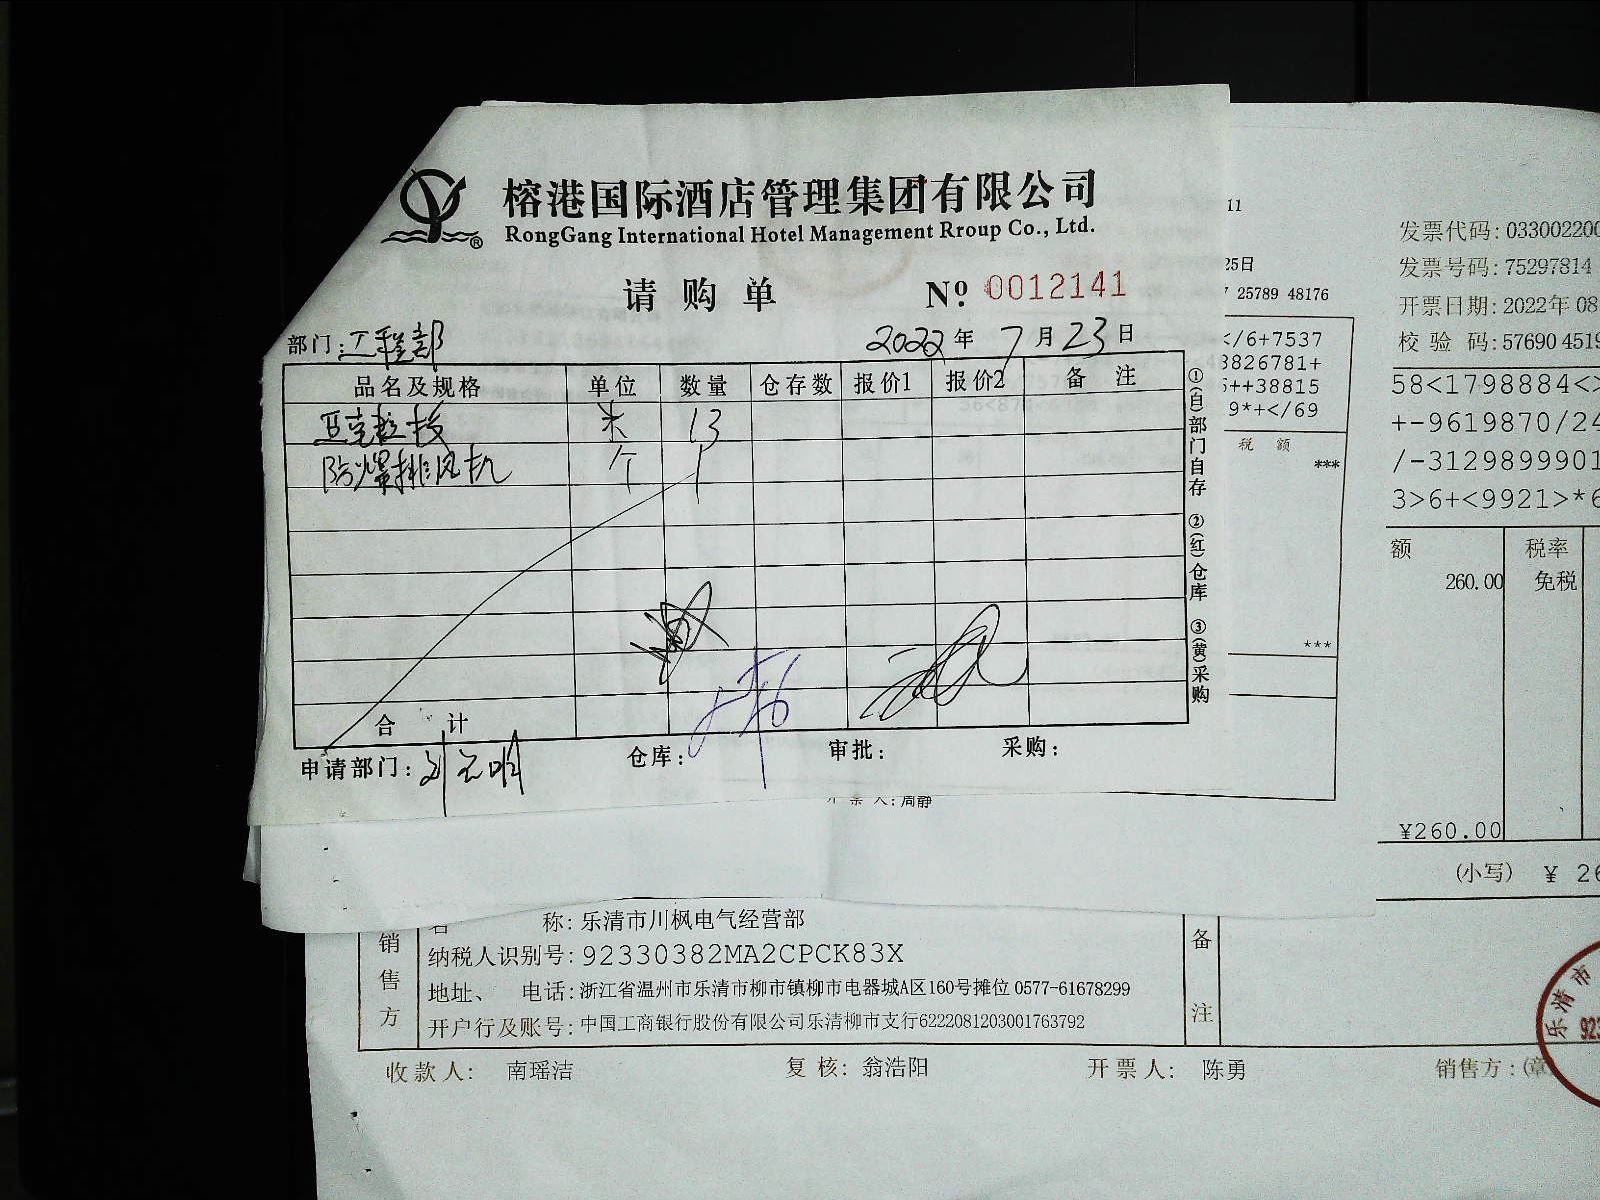 榕港国际酒店管理集团有限公司
RongGang International Hotel Management Rroup Co., Ltd.
请购单 No. 0012141
部门:工程部 2022年7月23日
品名及规格 单位 数量 仓存数 报价1 报价2 备注
亚克力板 米 13
防爆排风机 个 1
合计
申请部门: 仓库: 审批: 采购:
①(白)部门自存 ②(红)仓库 ③(黄)采购
11
25日
25789 48176
</6+7537
3826781+
5++38815
9*+</69
税额
***
***
开票人:周静
发票代码:033002200
发票号码:75297814
开票日期:2022年08
校验码:57690 4519
58<1798884<>
+-9619870/24
/-3129899901
3>6+<9921>*6
额 税率
260.00 免税
¥260.00
(小写) ¥ 26
销售方
名称:乐清市川枫电气经营部
纳税人识别号:92330382MA2CPCK83X
地址、电话:浙江省温州市乐清市柳市镇柳市电器城A区160号摊位 0577-61678299
开户行及账号:中国工商银行股份有限公司乐清柳市支行6222081203001763792
备注
收款人:南瑶洁 复核:翁浩阳 开票人:陈勇 销售方:(章)
乐清市
923